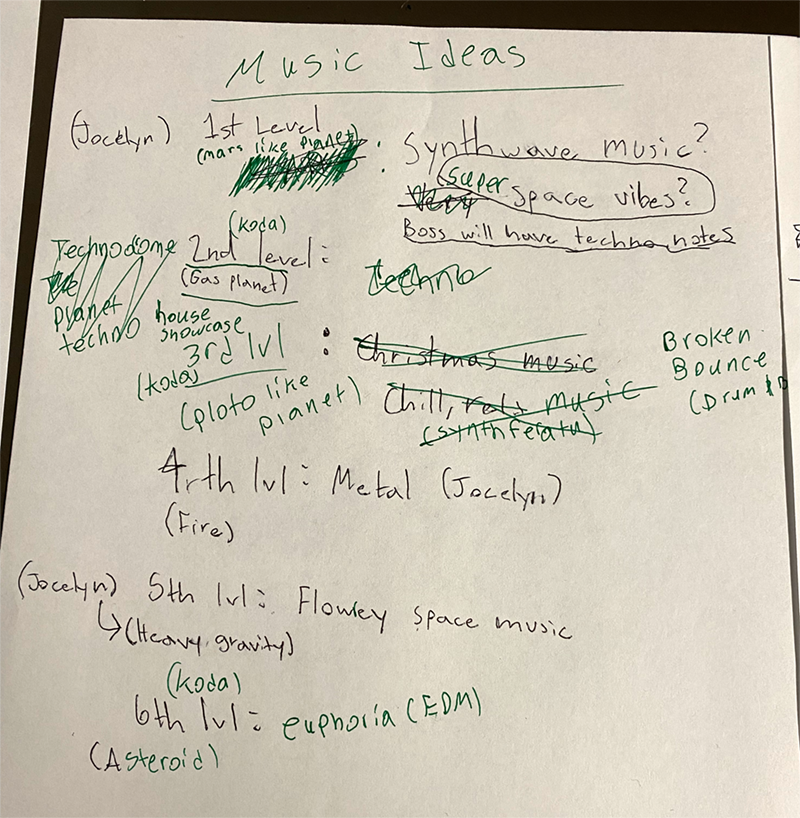 Music Ideas
(Jocelyn) 1st Level : Synthwave music?
(mars like planet)
Very super space vibes?
Boss will have techno notes
(koda)
Technodome 2nd level: techno
(Gas planet)
planet
techno
house
showcase
3rd lvl : Christmas music
(koda)
(ploto like
planet)
Chill, music
Broken
Bounce
(Drum
4rth lvl: Metal (Jocelyn)
(Fire)
(Jocelyn) 5th lvl: Flowey space music
(Heavy gravity)
(koda)
6th lvl: euphoria (EDM)
(Asteroid)